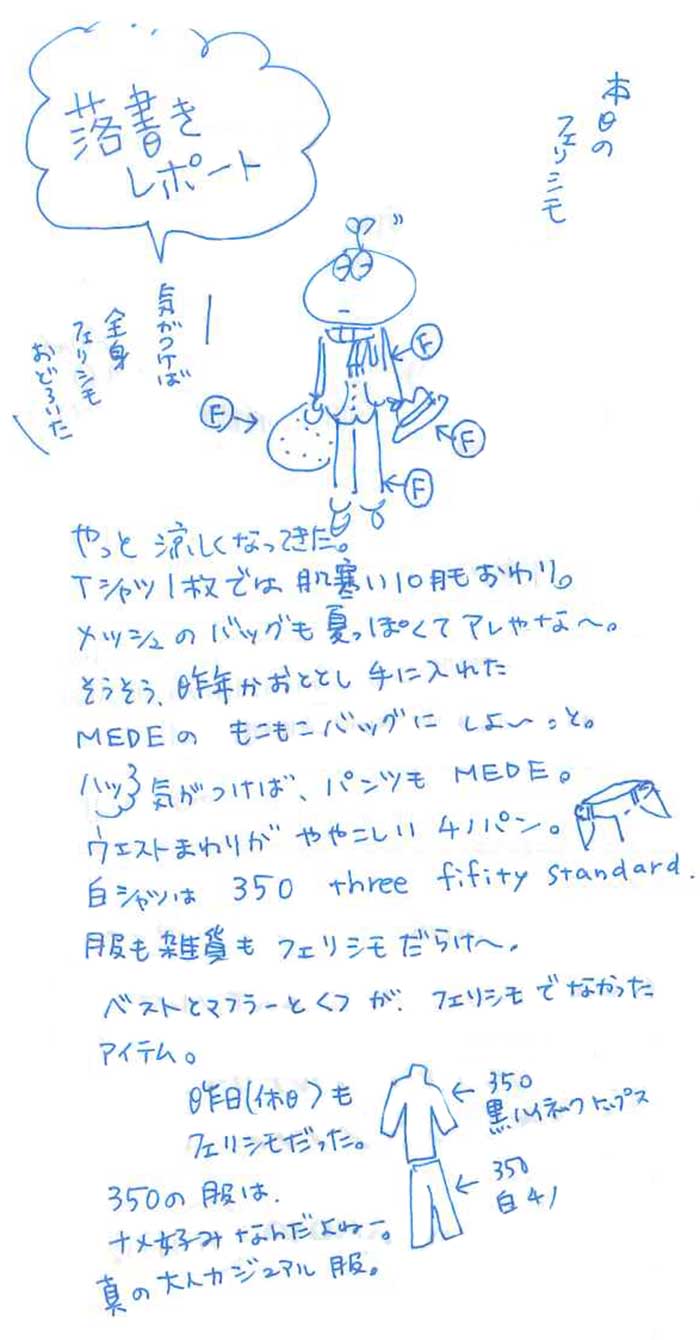 落書き
レポート
本日の
フェリシモ
気がつけば
全身
フェリシモ
おどろいた
F
F
F
F
やっと涼しくなってきた。
Tシャツ1枚では肌寒い10月もおわり。
メッシュのバッグも夏っぽくてアレやな〜。
そうそう、昨年かおととし手に入れた
MEDEのもこもこバッグにしよ〜っと。
ハッ 気がつけば、パンツもMEDE。
ウエストまわりがややこしい4ノパン。
白シャツは 350 three fifity standard.
服も雑貨もフェリシモだらけへ、
ベストとマフラーとくつが、フェリシモでなかった
アイテム。
昨日(休日)も
フェリシモだった。
← 350
黒ハイネックトップス
← 350
白4ノ
350の服は、
ナメ好みなんだよねー。
真の大人カジュアル服。